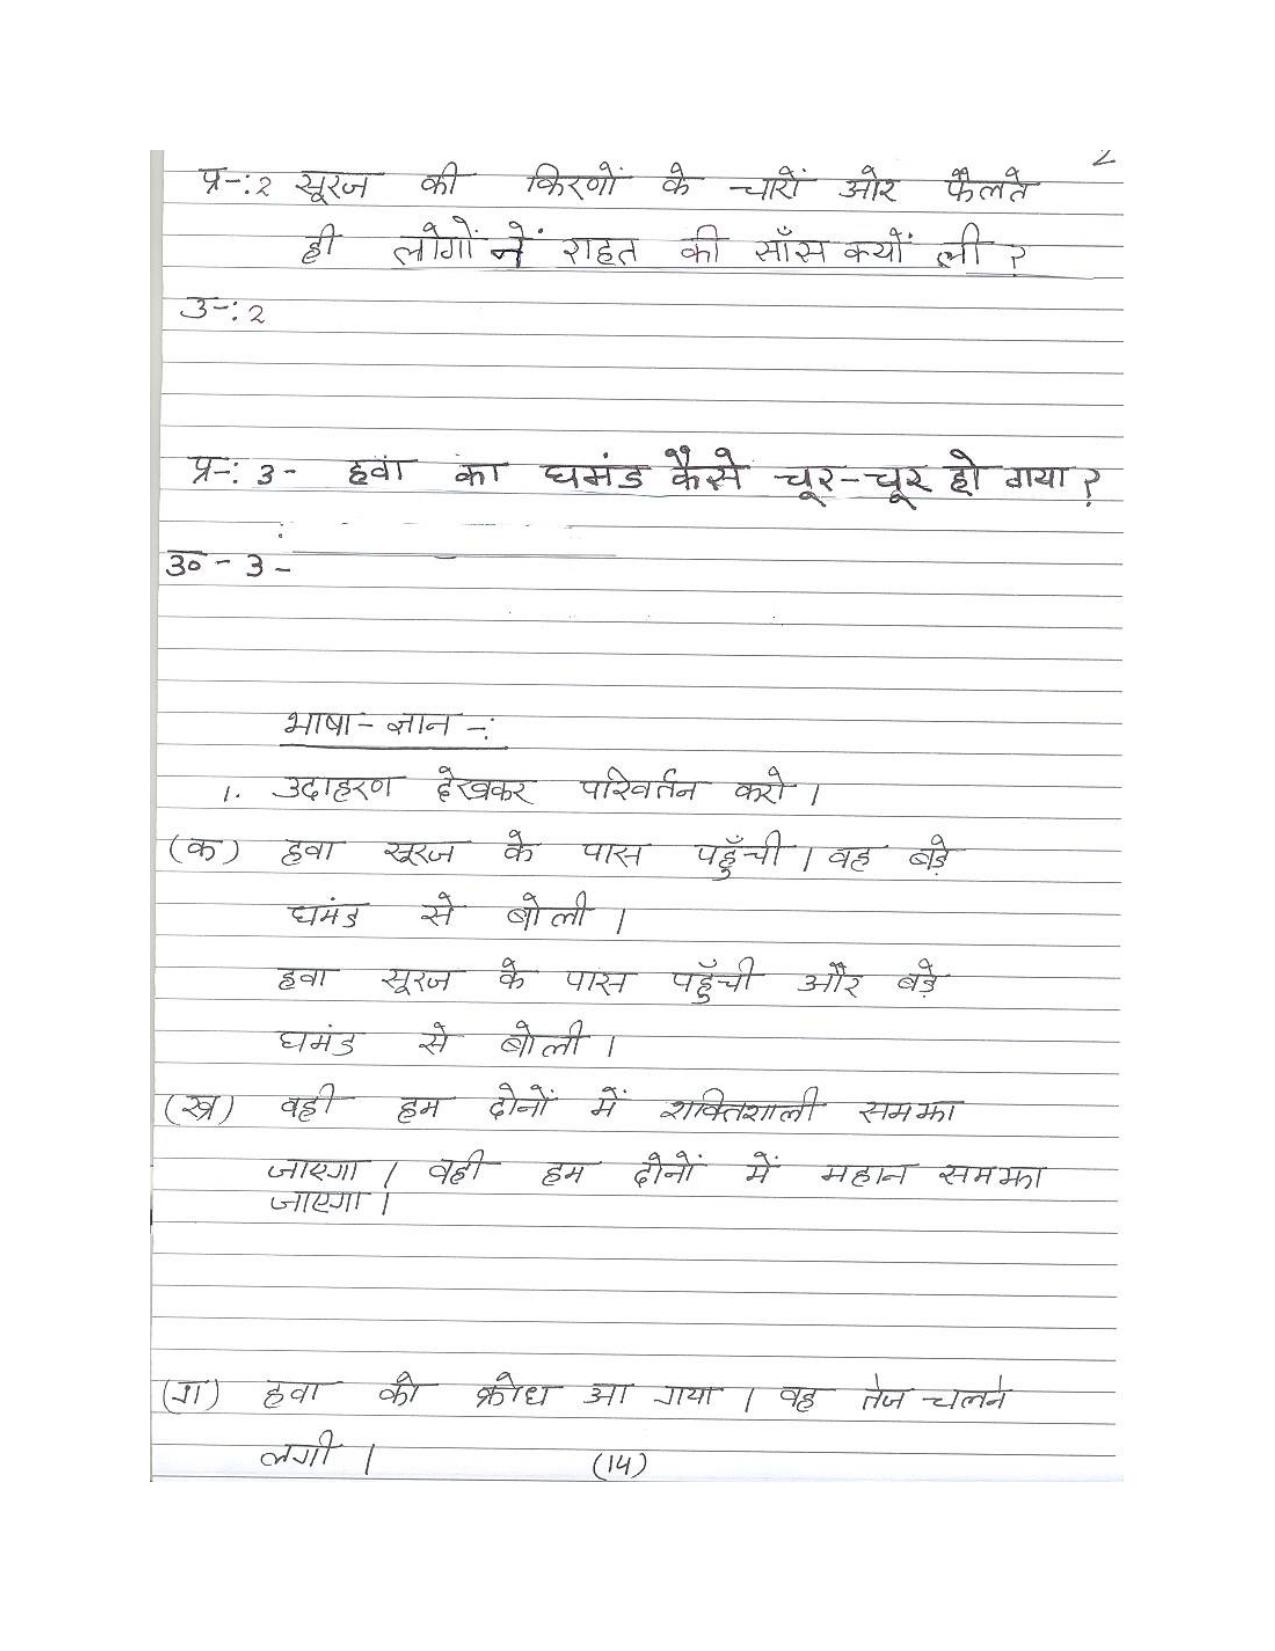 2
प्र-:2 सूरज की किरणों के चारों ओर फैलते
ही लोगों नें राहत की साँस क्यों ली ?
उ-:2
प्र-: 3- हवा का घमंड कैसे चूर-चूर हो गया ?
उ० - 3 -
भाषा - ज्ञान -:
1. उदाहरण देखकर परिवर्तन करो ।
(क) हवा सूरज के पास पहुँची । वह बड़े
घमंड से बोली ।
हवा सूरज के पास पहुँची और बड़े
घमंड से बोली ।
(ख) वही हम दोनों में शक्तिशाली समझा
जाएगा । वही हम दोनों में महान समझा
जाएगा ।
(ग) हवा को क्रोध आ गया । वह तेज चलने
लगी ।
(14)